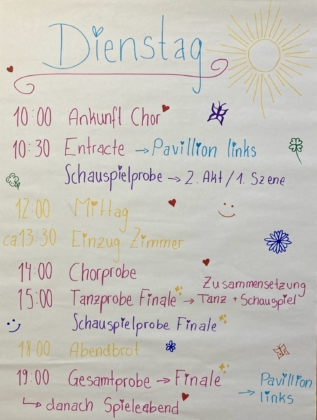 Dienstag
10:00 Ankunft Chor
10:30 Entracte → Pavillion links
Schauspielprobe → 2. Akt / 1. Szene
12:00 Mittag
ca 13:30 Einzug Zimmer
14:00 Chorprobe
15:00 Tanzprobe Finale → Zusammensetzung Tanz + Schauspiel
Schauspielprobe Finale
18:00 Abendbrot
19:00 Gesamtprobe → Finale → Pavillion links
↳ danach Spieleabend